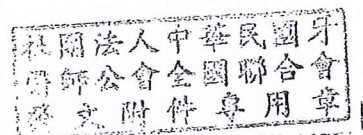 社團法人中華民國牙
醫師公會全國聯合會
發文附件專用章